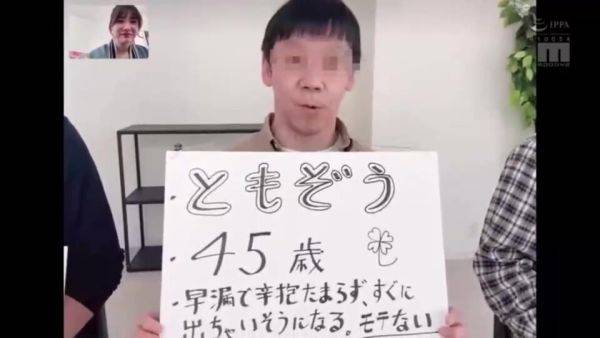 IPPA
M
MOODYZ
・ともぞう
・45歳
・早漏で辛抱たまらず、すぐに
出ちゃいそうになる。モテない